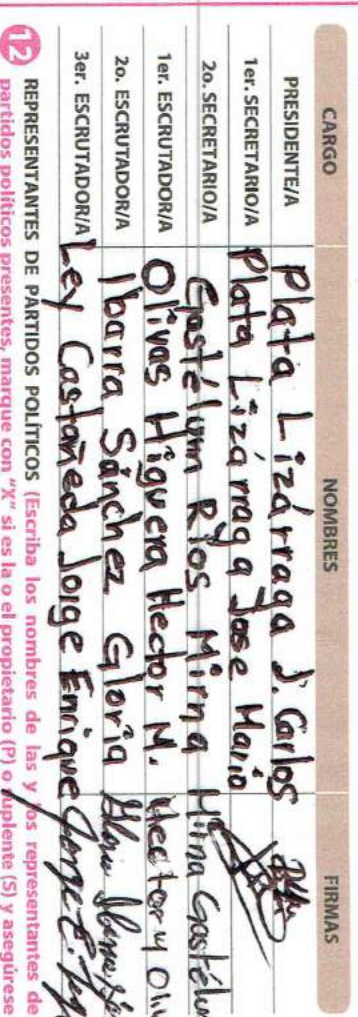 CARGO NOMBRES FIRMAS
PRESIDENTE/A Plata Lizárraga J. Carlos
1er. SECRETARIO/A Plata Lizárraga Jose Mario
2o. SECRETARIO/A Gastélum Rios Mirna Mirna Gastélu
1er. ESCRUTADOR/A Olivas Higuera Hector M. Hector M Oliv
2o. ESCRUTADOR/A Ibarra Sánchez Gloria Gloria Ibarra
3er. ESCRUTADOR/A Ley Castañeda Jorge Enrique Jorge E Ley
12 REPRESENTANTES DE PARTIDOS POLÍTICOS (Escriba los nombres de las y los representantes de
partidos políticos presentes, marque con "X" si es la o el propietario (P) o suplente (S) y asegúrese